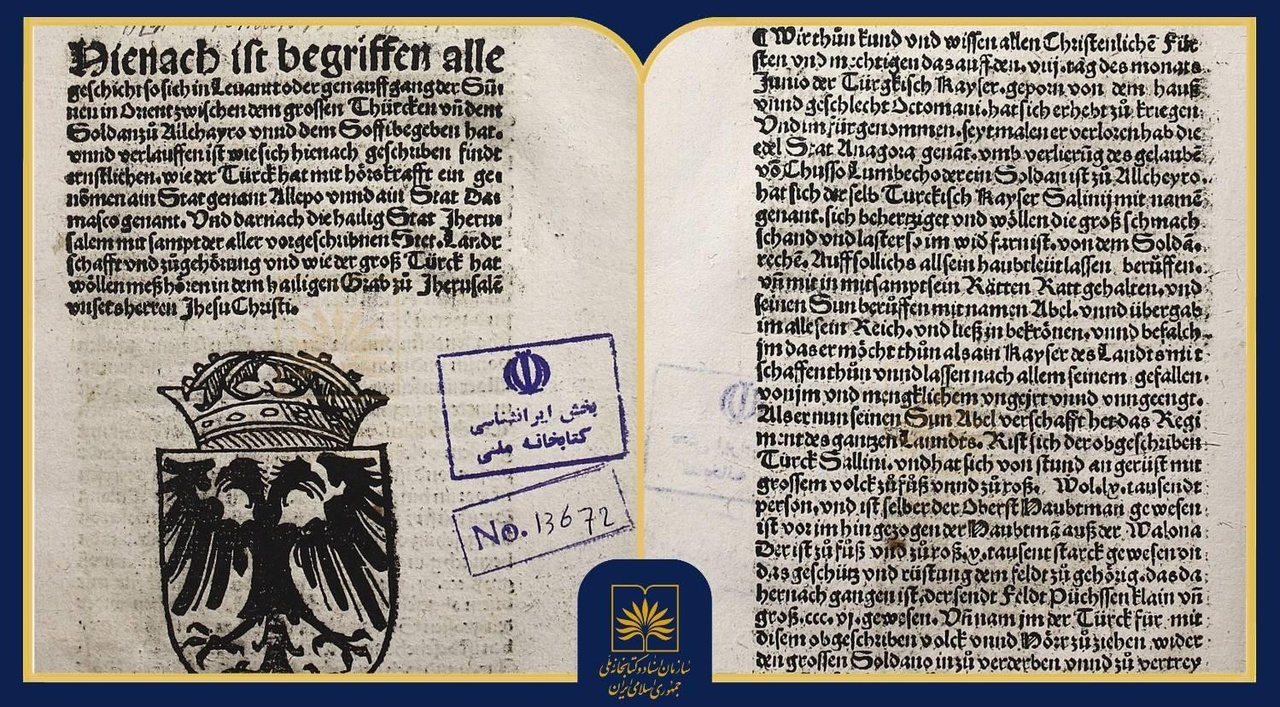 Hienach ist begriffen alle
geschicht so sich in Leuant oder gen auffgang der Sũ
nen in Orient zwischen dem grossen Thürcken vñ dem
Soldan zů Allchayro vnnd dem Soffi begeben hat.
vnnd verlauffen ist wie sich hienach geschriben findt
ernstlichen. wie der Türck hat mit hörs krafft ein ge
nõmen ain Stat genant Allepo vnnd ain Stat Da
masco genant. Vnd darnach die hailig Stat Jheru
salem mit sampt der aller vorgeschribnen Stet. Landt
schafft vnd zůgehörung vnd wie der groß Türck hat
wöllen meß hören in dem hailigen Grab zů Jherusalẽ
vnsers herren Jhesu Christi.
بخش ایرانشناسی
کتابخانه ملی
No. 13672
¶ Wir thůn kund vnd wissen allen Christenlichẽ Für
sten vnd mechtigen das auff den. viij. tag des monats
Junio der Türgkisch Kayser. geporn von dem hauß
vnnd geschlecht Octomani. hat sich erhebt zů kriegen
Vnd im fürgenommen. seytmalen er verloren hab die
edel Stat Anagora genãt. vmb verlierũg des gelaubẽ
võ Chusso Lumbecho der ein Soldan ist zů Allcheyro.
hat sich der selb Türckisch Kayser Salinij mit namẽ
genant. sich behertziget vnd wöllen die groß schmach
schand vnd laster so im wid farn ist. von dem Soldã.
rechẽ. Auff sollichs all sein haubtleüt lassen berüffen.
vñ mit in mit sampt sein Rätten Ratt gehalten. vnd
seinen Sun berüffen mit namen Abel. vnnd übergab
im alle sein Reich. vnd ließ in bekrönen. vnnd befalch
jm das er möcht thůn als ain Kayser des Landts mit
schaffen thůn vnnd lassen nach allem seinem gefallen.
von jm vnd mengklichem vngejrt vnnd vnngeengt.
Als er nun seinen Sun Abel verschafft het das Regi
ment des gantzen Lanndts. Rist sich der obgeschriben
Türck Sallini. vnd hat sich von stund an gerüst mit
grossem volck zů fůß vnnd zů roß. Wol. ly. tausendt
person. vnd ist selber der Oberst Haubtman gewesen
ist vor im hin gezogen der Haubtmã auß der Walona
Der ist zů fůß vnd zů roß. y. tausent starck gewesen on
das geschütz vnd rüstung dem feldt zů gehörig. das da
hernach gangen ist. der send Feldt Püchssen klain vñ
groß. ccc. vj. gewesen. Vñ nam jm der Türck für mit
disem obgeschriben volck vnnd Hörr zů ziehen. wider
den grossen Soldano in zů verderben vnnd zů vertrey
سازمان اسناد و کتابخانه ملی
جمهوری اسلامی ایران